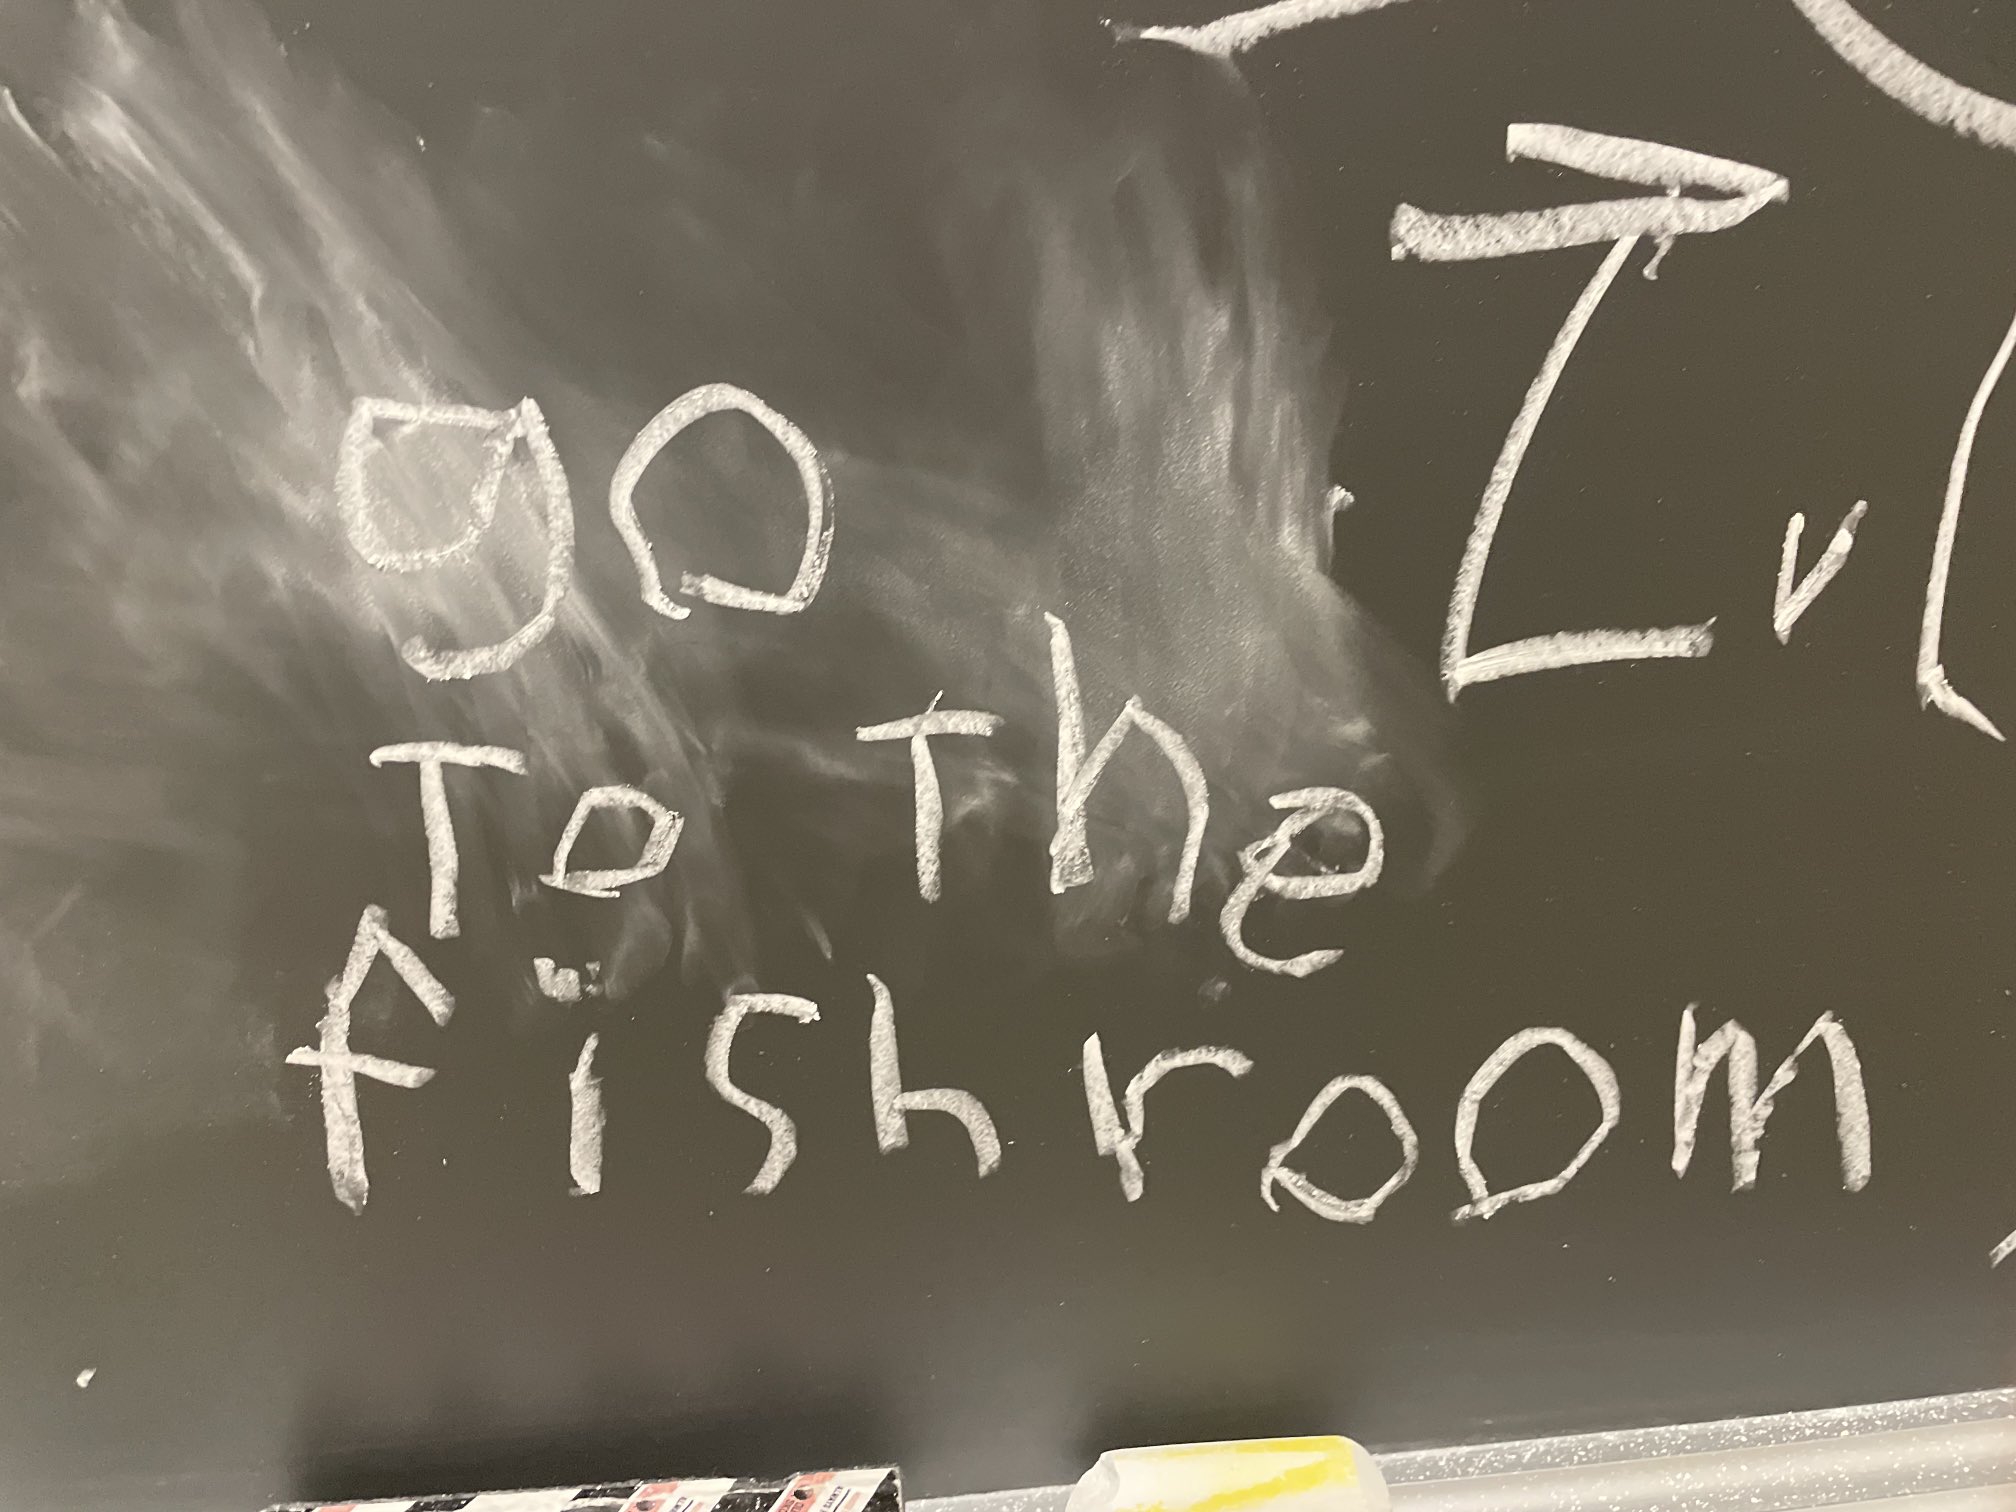 go
To The
fishroom